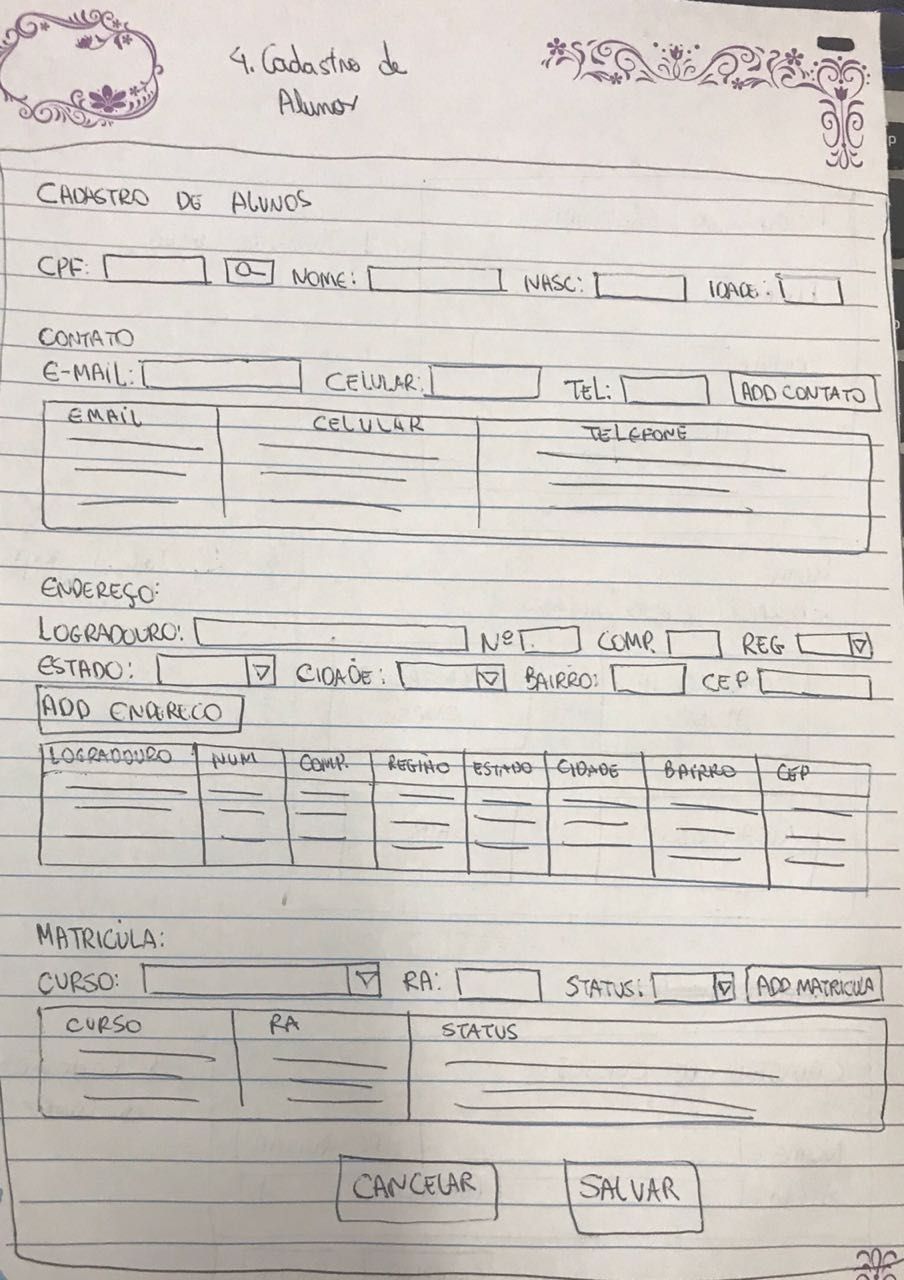 4. Cadastro de
Alunos
CADASTRO DE ALUNOS
CPF: NOME: NASC: IDADE:
CONTATO
E-MAIL: CELULAR: TEL: ADD CONTATO
EMAIL CELULAR TELEFONE
ENDEREÇO:
LOGRADOURO: Nº COMP. REG
ESTADO: CIDADE: BAIRRO: CEP
ADD ENDERECO
LOGRADOURO NUM COMP. REGIÃO ESTADO CIDADE BAIRRO CEP
MATRICULA:
CURSO: RA: STATUS: ADD MATRICULA
CURSO RA STATUS
CANCELAR SALVAR